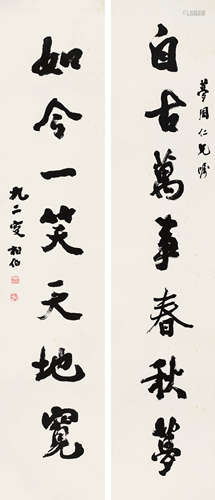 自古萬事春秋夢
夢周仁兄屬
如今一笑天地寬
九二叟相伯